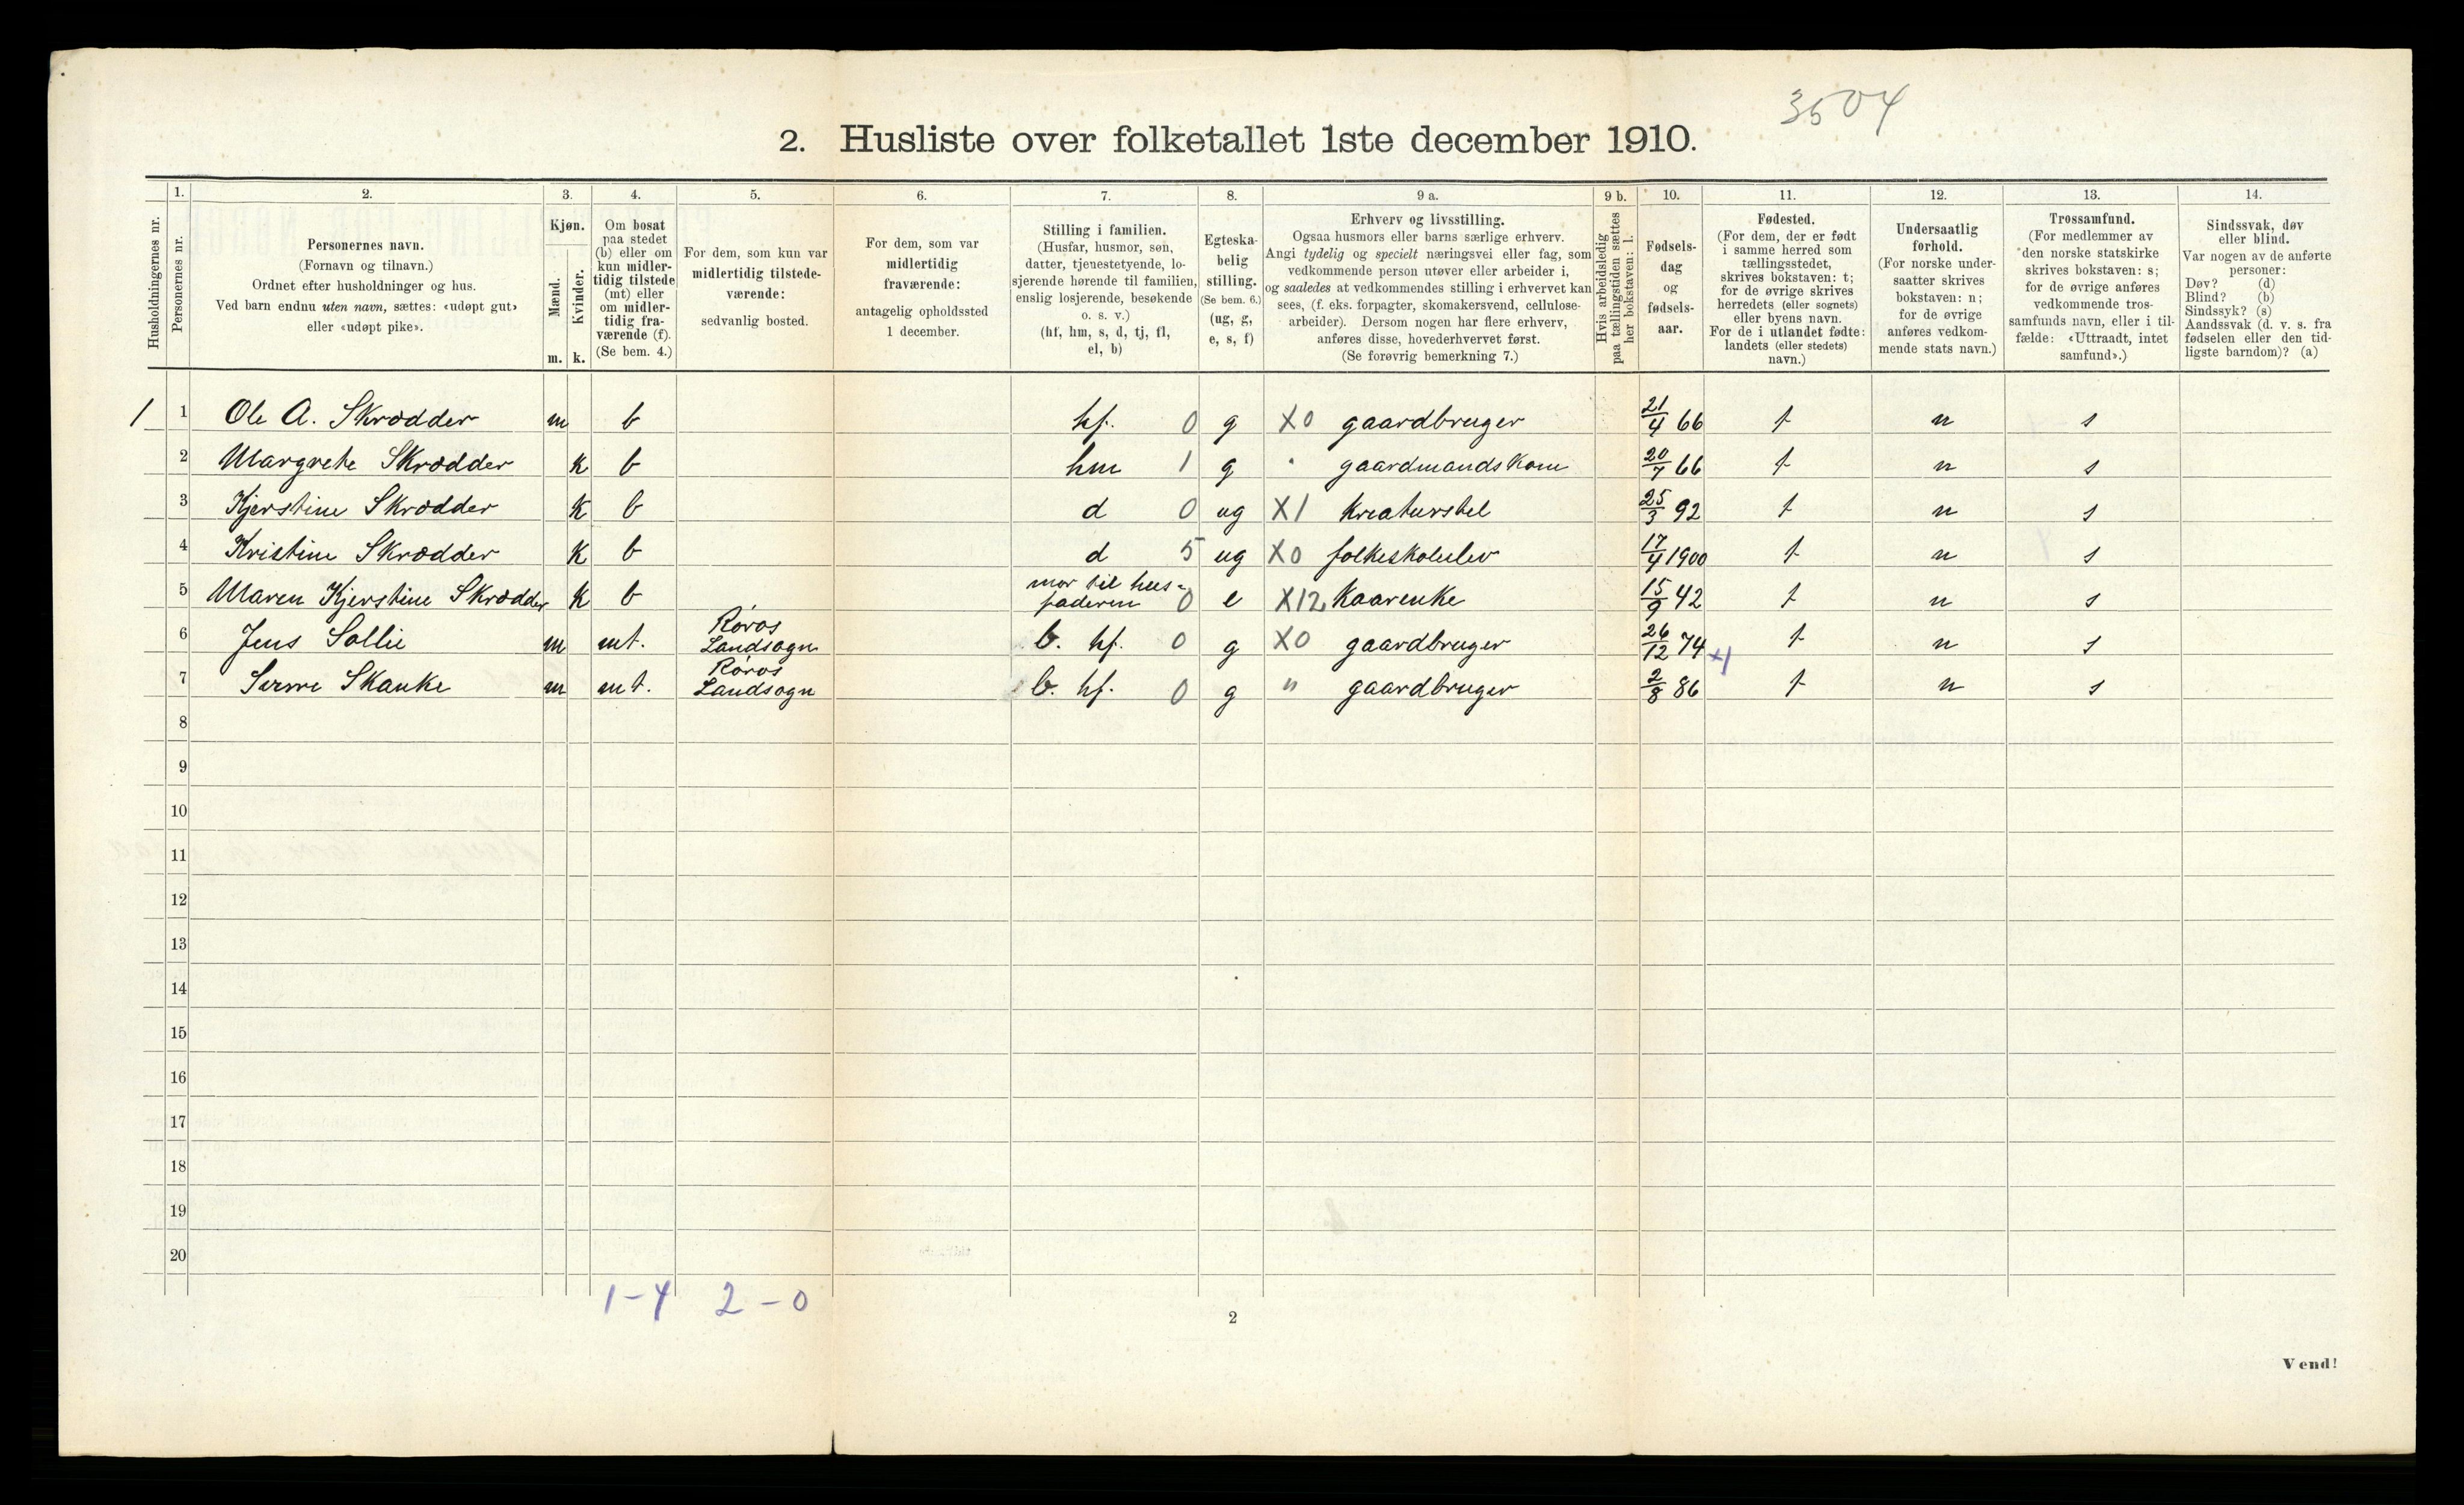 3504
2. Husliste over folketallet 1ste december 1910.
Husholdningernes nr.
1.
Personernes nr.
2.
Personernes navn.
(Fornavn og tilnavn.)
Ordnet efter husholdninger og hus.
Ved barn endnu uten navn, sættes: «udøpt gut»
eller «udøpt pike».
3.
Kjøn.
Mænd.
Kvinder.
m. k.
4.
Om bosat
paa stedet
(b) eller om
kun midler-
tidig tilstede
(mt) eller
om midler-
tidig fra-
værende (f).
(Se bem. 4.)
5.
For dem, som kun var
midlertidig tilstede-
værende:
sedvanlig bosted.
6.
For dem, som var
midlertidig
fraværende:
antagelig opholdssted
1 december.
7.
Stilling i familien.
(Husfar, husmor, søn,
datter, tjenestetyende, lo-
sjerende hørende til familien,
enslig losjerende, besøkende
o. s. v.)
(hf, hm, s, d, tj, fl,
el, b)
8.
Egteska-
belig
stilling.
(Se bem. 6.)
(ug, g,
e, s, f)
9 a.
Erhverv og livsstilling.
Ogsaa husmors eller barns særlige erhverv.
Angi tydelig og specielt næringsvei eller fag, som
vedkommende person utøver eller arbeider i,
og saaledes at vedkommendes stilling i erhvervet kan
sees, (f. eks. forpagter, skomakersvend, cellulose-
arbeider). Dersom nogen har flere erhverv,
anføres disse, hovederhvervet først.
(Se forøvrig bemerkning 7.)
9 b.
Hvis arbeidsledig
paa tællingstiden sættes
her bokstaven: l.
10.
Fødsels-
dag
og
fødsels-
aar.
11.
Fødested.
(For dem, der er født
i samme herred som
tællingsstedet,
skrives bokstaven: t;
for de øvrige skrives
herredets (eller sognets)
eller byens navn.
For de i utlandet fødte:
landets (eller stedets)
navn.)
12.
Undersaatlig
forhold.
(For norske under-
saatter skrives
bokstaven: n;
for de øvrige
anføres vedkom-
mende stats navn.)
13.
Trossamfund.
(For medlemmer av
den norske statskirke
skrives bokstaven: s;
for de øvrige anføres
vedkommende tros-
samfunds navn, eller i til-
fælde: «Uttraadt, intet
samfund».)
14.
Sindssvak, døv
eller blind.
Var nogen av de anførte
personer:
Døv? (d)
Blind? (b)
Sindssyk? (s)
Aandssvak (d. v. s. fra
fødselen eller den tid-
ligste barndom)? (a)
1 1 Ole A. Skrødder m b hf. 0 g X0 gaardbruger 21/4 66 t n s
2 Margrete Skrødder k b hm 1 g " gaardmandskone 20/7 66 t n s
3 Kjerstine Skrødder k b d 0 ug X1 kreaturstel 25/3 92 t n s
4 Kristine Skrødder k b d 5 ug X0 folkeskoleelev 17/4 1900 t n s
5 Maren Kjerstine Skrødder k b mor til hus-
faderen 0 e X12 Kaarenke 15/9 42 t n s
6 Jens Sollie m mt. Røros
Landsogn b. hf. 0 g X0 gaardbruger 26/12 74 t n s
x1
7 Skanke m mt. Røros
Landsogn b. hf. 0 g " gaardbruger 2/8 86 t n s
8
9
10
11
12
13
14
15
16
17
18
19
20
1-4 2-0
2
Vend!